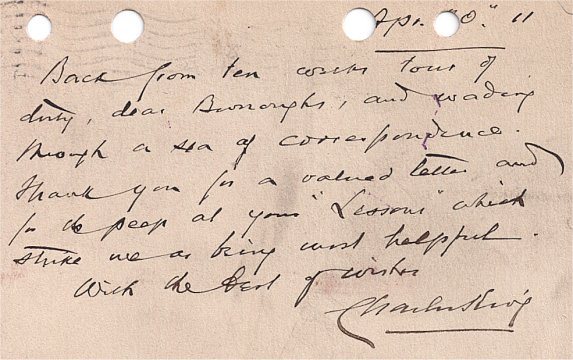 Apr. "0." 11
Back from ten weeks tour of
duty, dear Burroughs, and wading
through a sea of correspondence.
Thank you for a valued letter and
for the peep at your "Lessons" which
strike me as being most helpful.
With the best of wishes
Charles King